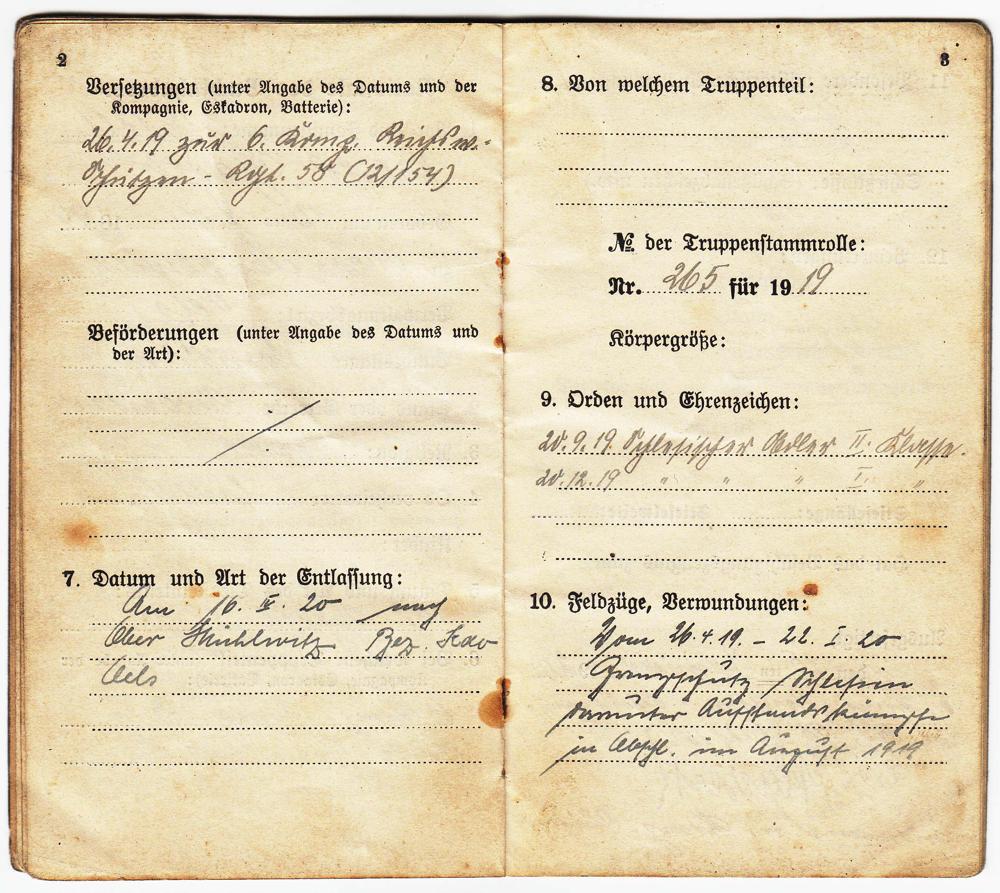 2
Versetzungen (unter Angabe des Datums und der
Kompagnie, Eskadron, Batterie):
26.4.19 zur 6. Komp. Reichsw.-
Schützen-Rgt. 58 (12/154)
Beförderungen (unter Angabe des Datums und
der Art):
7. Datum und Art der Entlassung:
Am 16. II. 20 nach
Ober Mühlwitz Bez. Kdo
Oels
3
8. Von welchem Truppenteil:
№ der Truppenstammrolle:
Nr. 265 für 1919
Körpergröße:
9. Orden und Ehrenzeichen:
20.9.19. Schlesischer Adler II. Klasse.
20.12.19 " " " I. "
10. Feldzüge, Verwundungen:
Vom 26.4.19. – 22. I. 20
Grenzschutz Schlesien
darunter Aufstandskämpfe
in Obschl. im August 1919